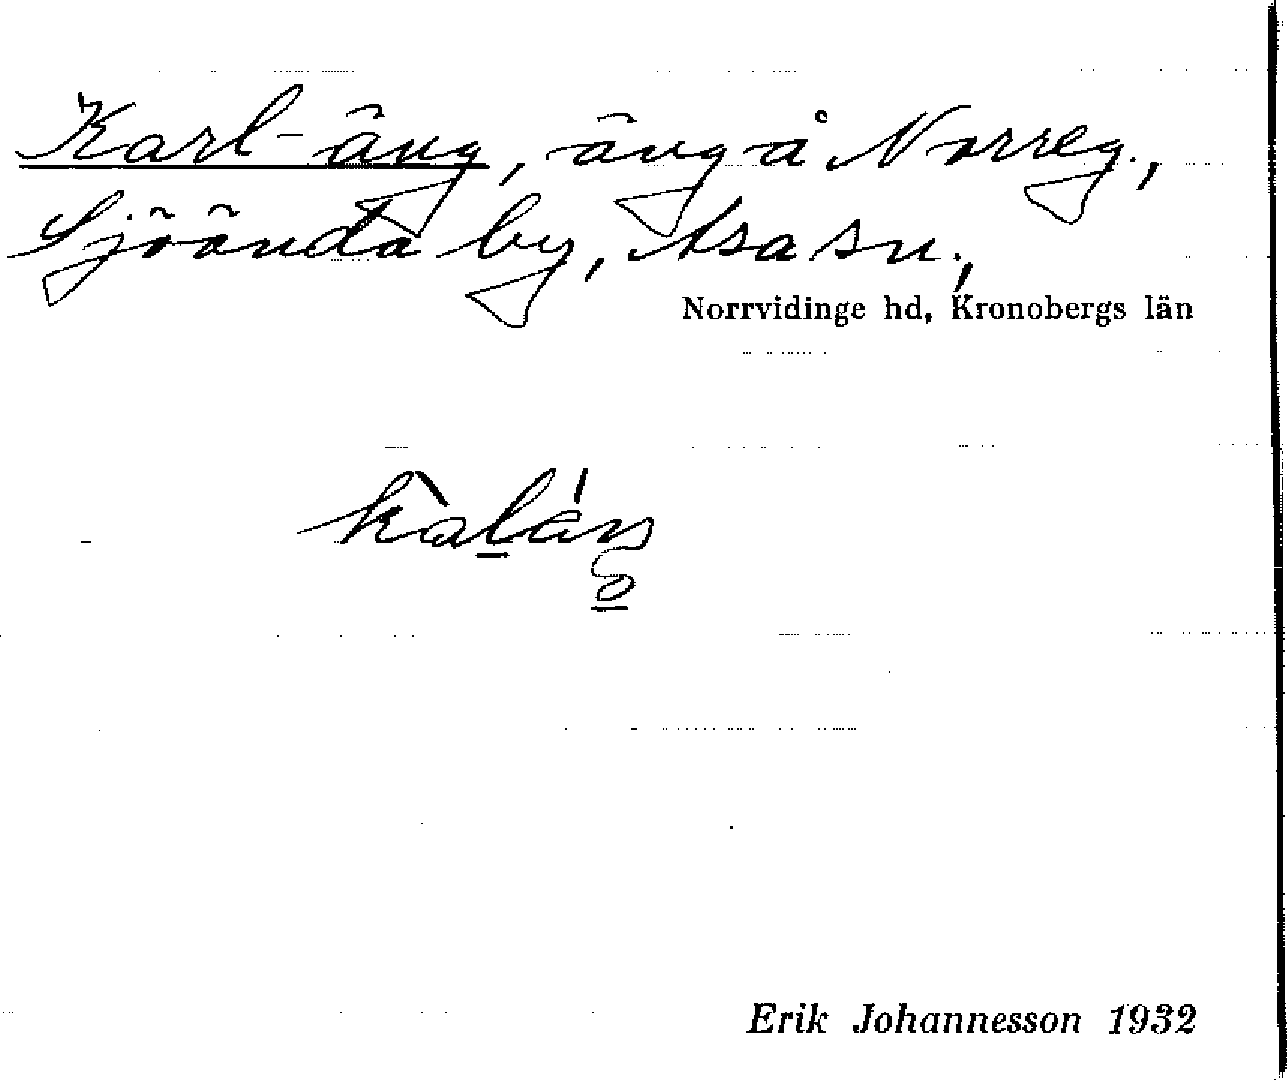 Karl-äng, äng å Norreg.,
Sjöända by, Asa sn.,
Norrvidinge hd, Kronobergs län
Erik Johannesson 1932